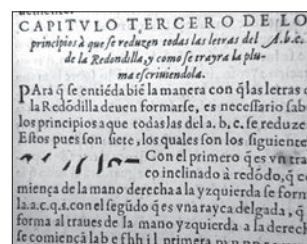 CAPITVLO TERCERO DE LO
principios à que se reduzen todas las letras del A.b.c.
de la Redondilla, y como se trayra la plu-
ma escriuiendola.
PAra q̃ se entiẽda biẽ la manera con q̃ las letras d
la Redõdilla deuen formarse, es necessario sabe
los principios a que todas las del a. b. c. se reduzẽ
Estos pues son siete, los quales son los siguiente
Con el primero q̃ es vn tra
co inclinado à redõdo, q̃ co
miença de la mano derecha a la yzquierda se form
la.a.c.q.s.con el segũdo q̃ es vna raya delgada, q̃
forma al traues de la mano yzquierda a la derech
se comiença la b e f h h i l